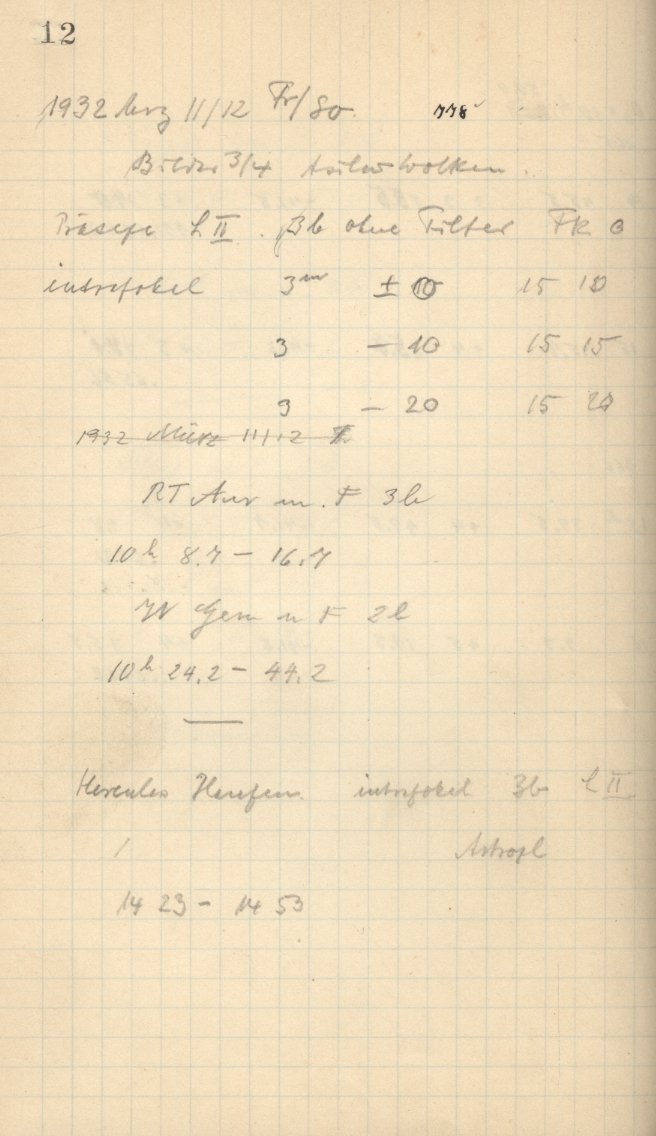 12
1932 März 11/12 Fr/So. 778
Bilder 3/4 Wolken.
Präsepe L II. Bb ohne Filter FK
intrafokal 3m ± 10 15 10
3 – 10 15 15
3 – 20 15 20
1932 März 11/12 F
RT Aur m. F 3b
10h 8.7 – 16.7
W Gem m F 2b
10h 24.2 – 44.2
Hercules Haufen intrafokal 3b L II
Astropl
14 23 – 14 53